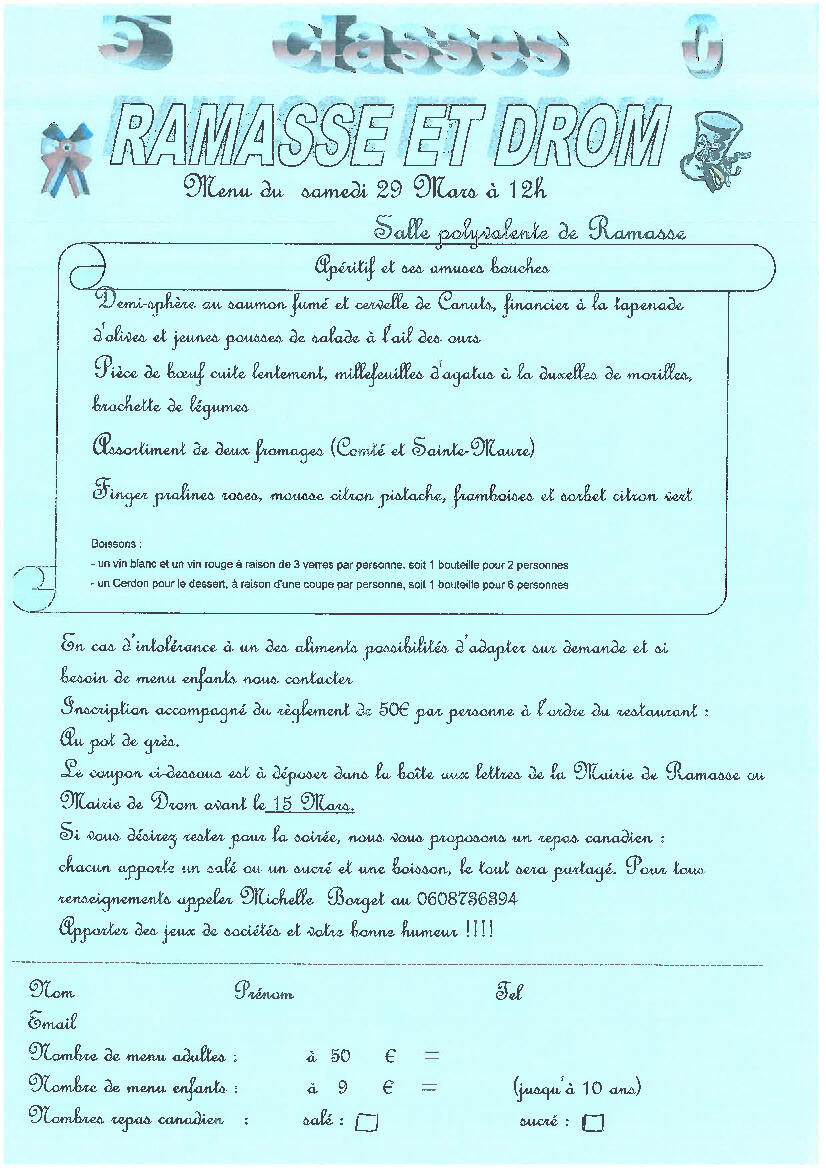 5 classes 0
RAMASSE ET DROM
Menu du samedi 29 Mars à 12h
Salle polyvalente de Ramasse
Apéritif et ses amuses bouches
Demi-sphère au saumon fumé et cervelle de Canuts, financier à la tapenade
d'olives et jeunes pousses de salade à l'ail des ours
Pièce de bœuf cuite lentement, millefeuilles d'agatas à la duxelles de morilles,
brochette de légumes
Assortiment de deux fromages (Comté et Sainte-Maure)
Finger pralines roses, mousse citron pistache, framboises et sorbet citron vert
Boissons :
- un vin blanc et un vin rouge à raison de 3 verres par personne, soit 1 bouteille pour 2 personnes
- un Cerdon pour le dessert, à raison d'une coupe par personne, soit 1 bouteille pour 6 personnes
En cas d'intolérance à un des aliments possibilités d'adapter sur demande et si
besoin de menu enfants nous contacter
Inscription accompagné du règlement de 50€ par personne à l'ordre du restaurant :
Au pot de grès.
Le coupon ci-dessous est à déposer dans la boîte aux lettres de la Mairie de Ramasse ou
Mairie de Drom avant le 15 Mars.
Si vous désirez rester pour la soirée, nous vous proposons un repas canadien :
chacun apporte un salé ou un sucré et une boisson, le tout sera partagé. Pour tous
renseignements appeler Michelle Borget au 0608736394
Apporter des jeux de sociétés et votre bonne humeur !!!!
Nom Prénom Tel
Email
Nombre de menu adultes : à 50 € =
Nombre de menu enfants : à 9 € = (jusqu'à 10 ans)
Nombres repas canadien : salé : sucré :